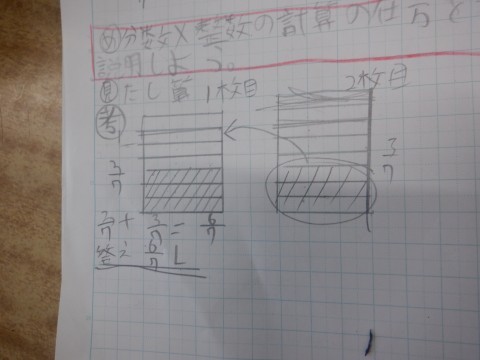 め 分数×整数の計算の仕方を
説明しよう。
見 たし算 1枚目 2枚目
考
3/7
3/7
3/7 + 3/7 = 6/7
答え 6/7 L